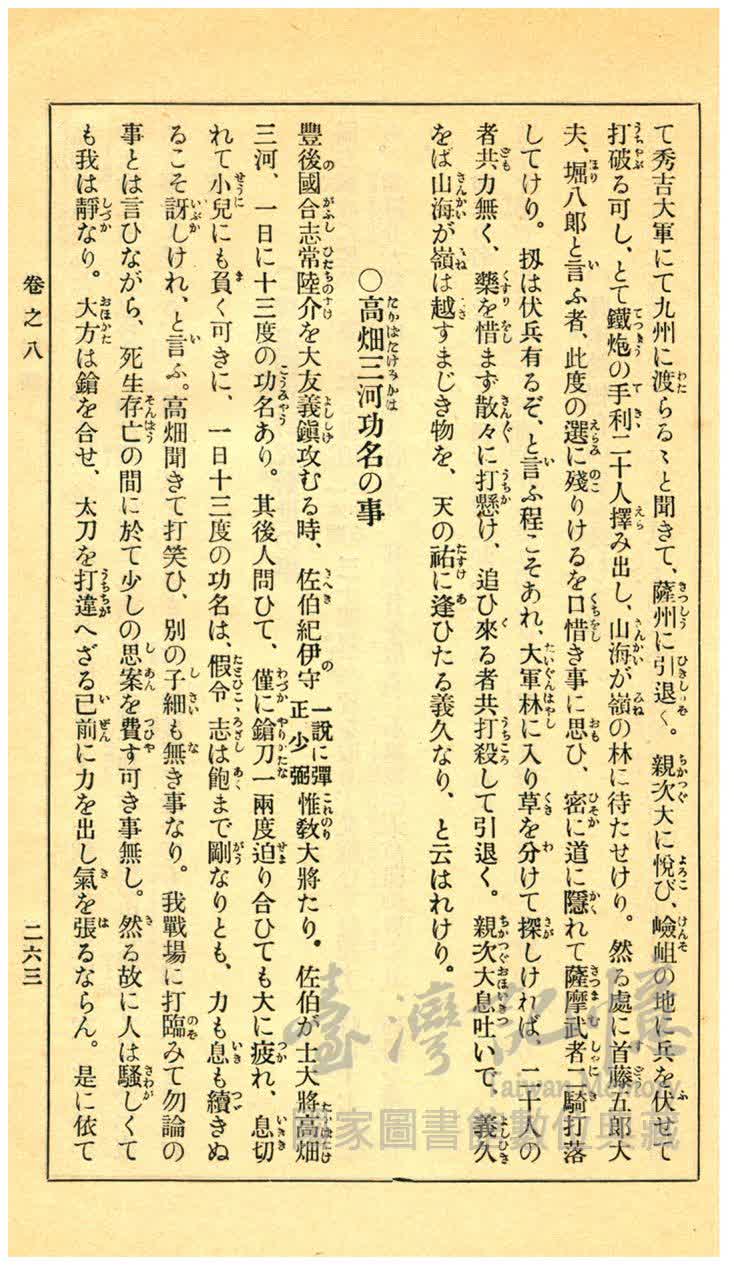 て秀吉大軍にて九州に渡らるゝと聞きて、薩州に引退く。親次大に悅び、嶮岨の地に兵を伏せて
打破る可し、とて鐵炮の手利二十人擇み出し、山海が嶺の林に待たせけり。然る處に首藤五郎大
夫、堀八郎と言ふ者、此度の選に殘りけるを口惜き事に思ひ、密に道に隱れて薩摩武者二騎打落
してけり。扨は伏兵有るぞ、と言ふ程こそあれ、大軍林に入り草を分けて探しければ、二十人の
者共力無く、藥を惜まず散々に打懸け、追ひ來る者共打殺して引退く。親次大息吐いで、義久
をば山海が嶺は越すまじき物を、天の祐に逢ひたる義久なり、と云はれけり。
○高畑三河功名の事
豐後國合志常陸介を大友義鎭攻むる時、佐伯紀伊守一說に彈正少弼惟敎大將たり。佐伯が士大將高畑
三河、一日に十三度の功名あり。其後人問ひて、僅に鎗刀一兩度迫り合ひても大に疲れ、息切
れて小兒にも負く可きに、一日十三度の功名は、假令志は飽まで剛なりとも、力も息も續きぬ
るこそ訝しけれ、と言ふ。高畑聞きて打笑ひ、別の子細も無き事なり。我戰場に打臨みて勿論の
事とは言ひながら、死生存亡の間に於て少しの思案を費す可き事無し。然る故に人は騷しくて
も我は靜なり。大方は鎗を合せ、太刀を打違へざる已前に力を出し氣を張るならん。是に依て
卷之八
二六三
臺灣記憶
Taiwan Memory
國家圖書館數位典藏